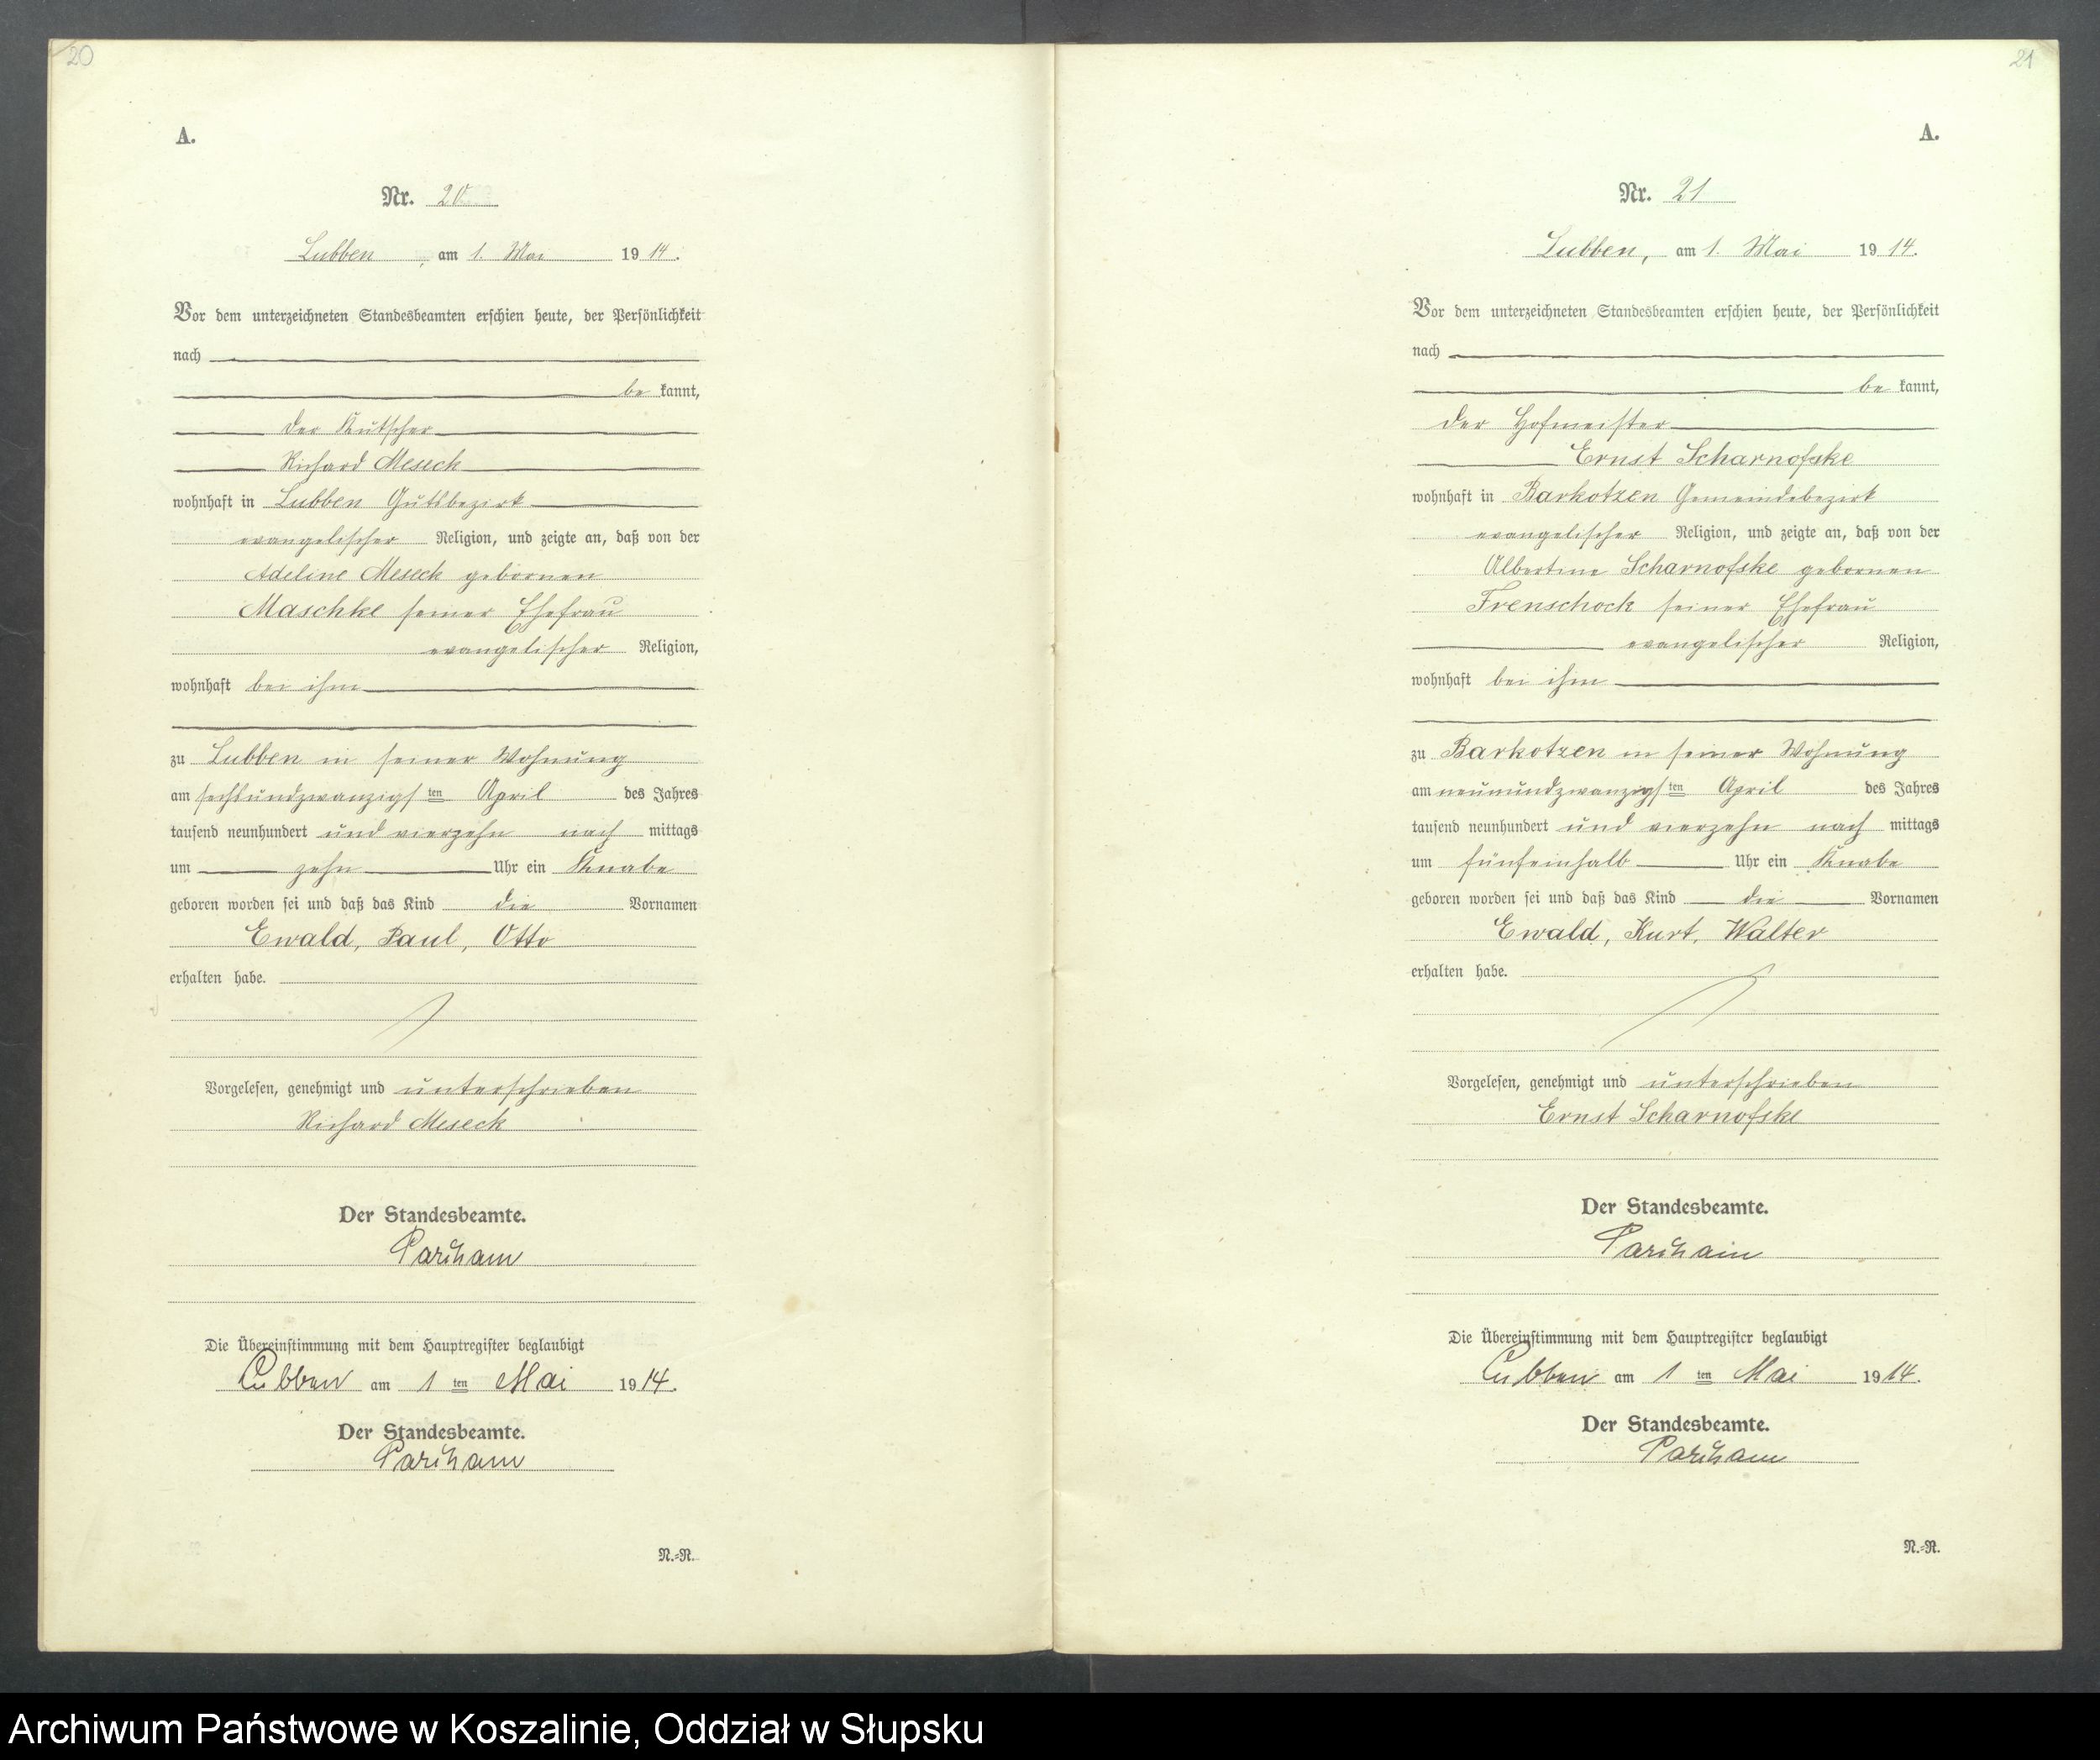 20
A.
Nr. 20
Lubben, am 1. Mai 1914.
Vor dem unterzeichneten Standesbeamten erschien heute, der Persönlichkeit
nach
be kannt,
der Kutscher
Richard Meseck
wohnhaft in Lubben Gutsbezirk
evangelischer Religion, und zeigte an, daß von der
Adeline Meseck gebornen
Maschke seiner Ehefrau
evangelischer Religion,
wohnhaft bei ihm
zu Lubben in seiner Wohnung
am sechsundzwanzigsten April des Jahres
tausend neunhundert und vierzehn nach mittags
um zehn Uhr ein Knabe
geboren worden sei und daß das Kind die Vornamen
Ewald, Paul, Otto
erhalten habe.
Vorgelesen, genehmigt und unterschrieben
Richard Meseck
Der Standesbeamte.
Die Übereinstimmung mit dem Hauptregister beglaubigt
Lubben am 1 ten Mai 1914.
Der Standesbeamte.
N.=R.
21
A.
Nr. 21
Lubben, am 1. Mai 1914.
Vor dem unterzeichneten Standesbeamten erschien heute, der Persönlichkeit
nach
be kannt,
der Hofmeister
Ernst Scharnofske
wohnhaft in Barkotzen Gemeindebezirk
evangelischer Religion, und zeigte an, daß von der
Albertine Scharnofske gebornen
Frenschock seiner Ehefrau
evangelischer Religion,
wohnhaft bei ihm
zu Barkotzen in seiner Wohnung
am neunundzwanzigsten April des Jahres
tausend neunhundert und vierzehn nach mittags
um fünfeinhalb Uhr ein Knabe
geboren worden sei und daß das Kind die Vornamen
Ewald, Kurt, Walter
erhalten habe.
Vorgelesen, genehmigt und unterschrieben
Ernst Scharnofske
Der Standesbeamte.
Die Übereinstimmung mit dem Hauptregister beglaubigt
Lubben am 1 ten Mai 1914.
Der Standesbeamte.
N.=R.
Archiwum Państwowe w Koszalinie, Oddział w Słupsku